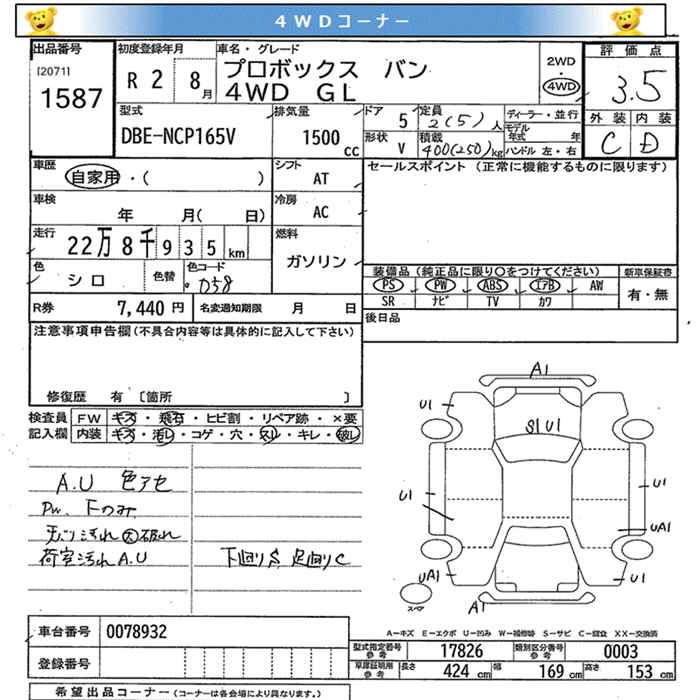 4WDコーナー
出品番号
[2071]
1587
初度登録年月
R 2 8月
車名・グレード
プロボックス バン
4WD GL
2WD
・
4WD
評価点
3.5
外装 内装
C D
型式
DBE-NCP165V
排気量
1500 cc
ドア
5
形状
V
定員
2(5)人
積載
400(250)kg
ディーラー・並行
モデル年式 年
ハンドル 左・右
車歴
自家用・( )
シフト
AT
車検
年 月( 日)
冷房
AC
走行
22万8千935km
燃料
ガソリン
色
シロ
色替
色コード
058
R券 7,440円
名変通知期限 月 日
セールスポイント (正常に機能するものに限ります)
装備品 (純正品に限り○をつけてください)
新車保証書
PS PW ABS エアB AW
SR ナビ TV カワ
有・無
後日品
注意事項申告欄(不具合内容等は具体的に記入して下さい)
修復歴 有 [箇所 ]
検査員
記入欄
FW キズ・飛石・ヒビ割・リペア跡・×要
内装 キズ・汚レ・コゲ・穴・スレ・キレ・破レ
A.U 色アセ
PW 下のみ
天バリ汚れ大破れ
荷室汚れA.U
下回りS 足回りC
A1
U1
S1 U1
U1
U1
UA1
UA1
U1
A1
スペア
A-キズ E-エクボ U-凹み W-補修跡 S-サビ C-腐食 XX-交換済
車台番号 0078932
登録番号
型式指定番号
参考
17826
類別区分番号
参考
0003
車庫証明用
参考
長さ 424 cm 幅 169 cm 高さ 153 cm
希望出品コーナー (コーナーは各会場により異なります。)